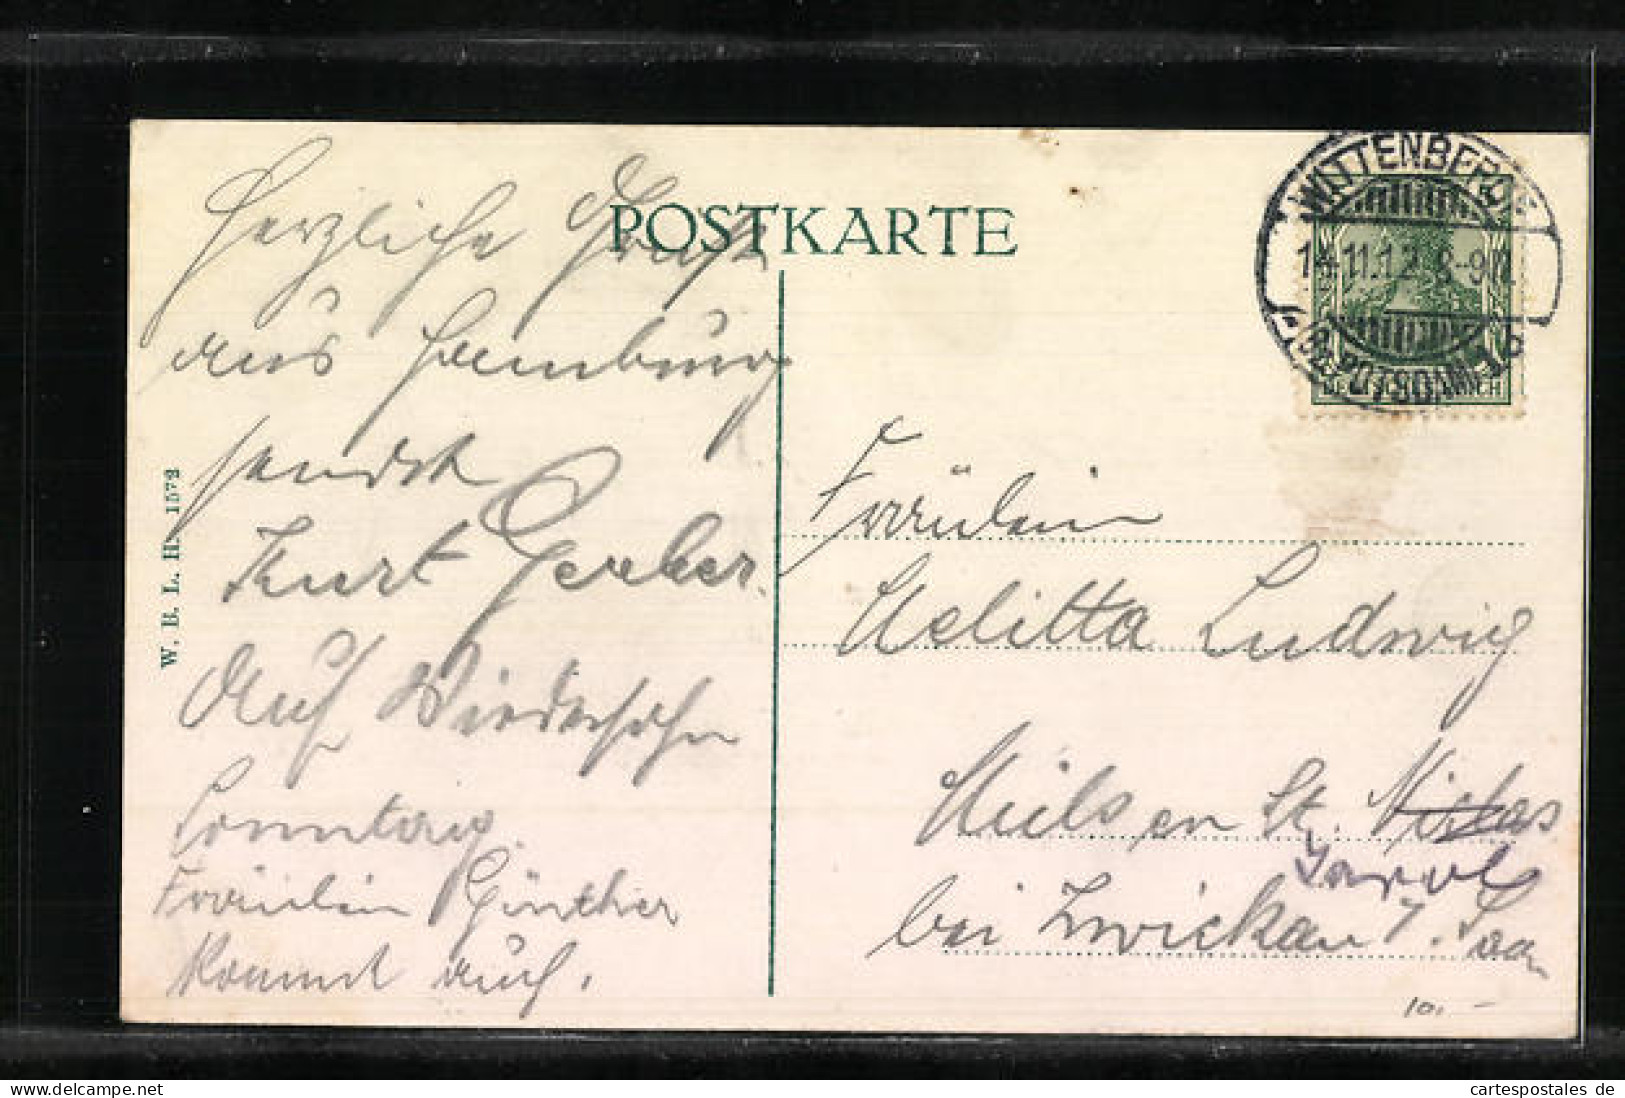 POSTKARTE
Herzliche Grüße
aus Hamburg
sendet
Kurt Gerber.
Auf Wiedersehn
Sonntag.
Fräulein Günther
kommt auch.
W. B. L. H. 1572
WITTENBERGE
14.11.12 8-9N
(Bz. POTSDAM)
Fräulein
Melitta Ludwig
Mülsen St. Niklas
Jacob
bei Zwickau i. Sa
10.-
delcampe.net
cartespostales de